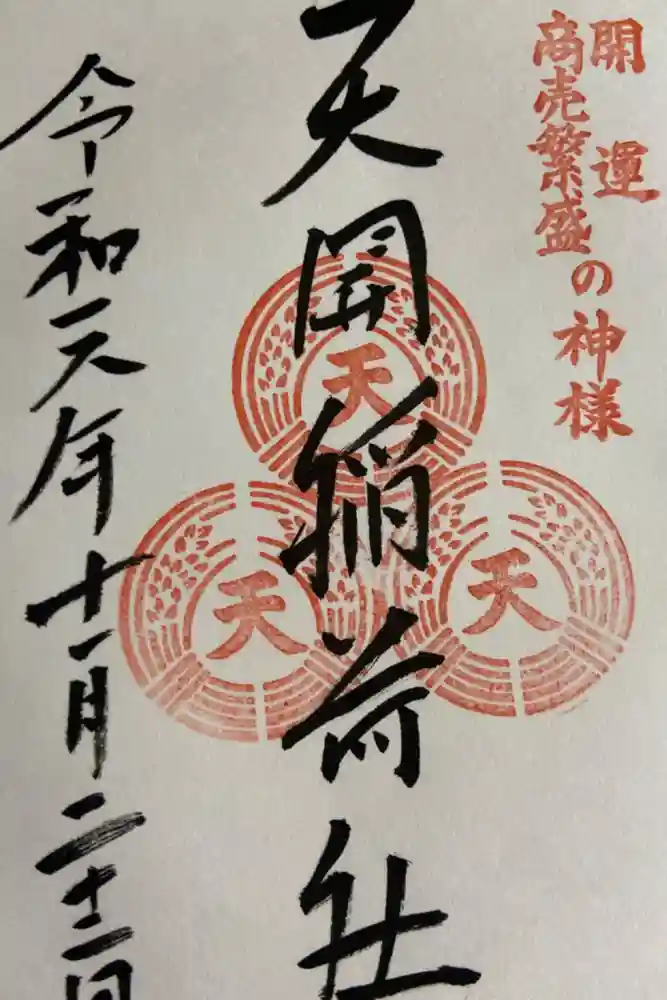 開運
商売繁盛
の神様
天開稲荷社
天
天
天
令和元年十一月二十二日